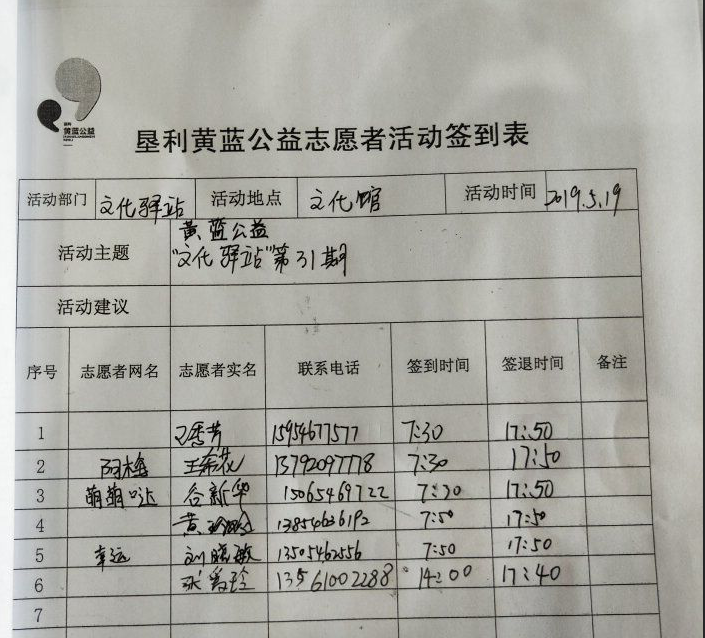 黄蓝公益
垦利黄蓝公益志愿者活动签到表
活动部门 文化驿站 活动地点 文化馆 活动时间 2019.5.19
活动主题 黄蓝公益
"文化驿站"第31期
活动建议
序号 志愿者网名 志愿者实名 联系电话 签到时间 签退时间 备注
1 15954677577 7:30 17:50
2 阿梅 13792097778 7:30 17:50
3 萌萌哒 谷新华 15065469722 7:30 17:50
4 黄 13854636192 7:50 17:50
5 幸运 刘晓敏 13505462556 7:50 17:50
6 张爱玲 13561002288 14:00 17:40
7